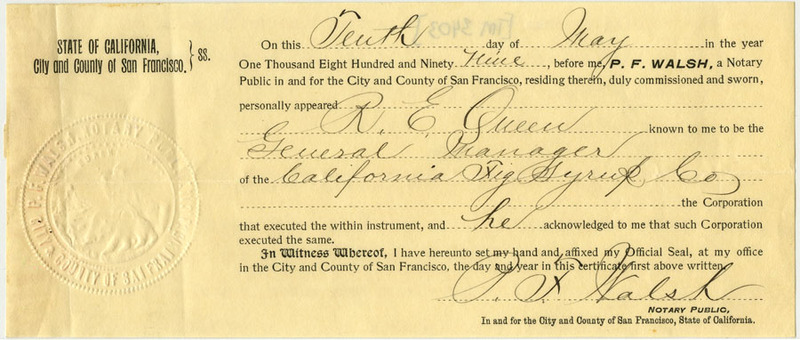 [Im 3403]
STATE OF CALIFORNIA,
City and County of San Francisco. } ss.
On this Tenth day of May in the year
One Thousand Eight Hundred and Ninety Nine, before me, P. F. WALSH, a Notary
Public in and for the City and County of San Francisco, residing therein, duly commissioned and sworn,
personally appeared
R. E. Queen known to me to be the
General Manager
of the California Fig Syrup Co
the Corporation
that executed the within instrument, and he acknowledged to me that such Corporation
executed the same.
In Witness Whereof, I have hereunto set my hand and affixed my Official Seal, at my office
in the City and County of San Francisco, the day and year in this certificate first above written.
P. F. Walsh
NOTARY PUBLIC,
In and for the City and County of San Francisco, State of California.
P. F. WALSH, NOTARY PUBLIC
CITY & COUNTY OF SAN FRANCISCO